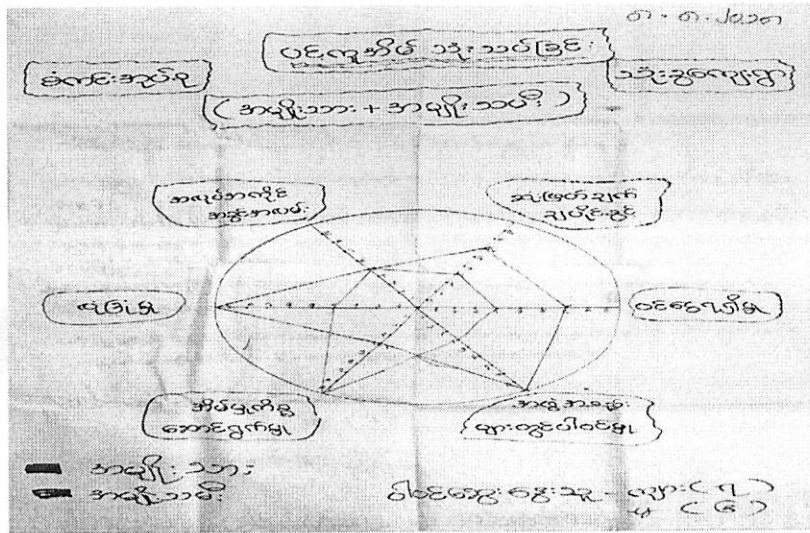 ၈.၈.၂၀၁၈
ပင့်ကူအိမ် သုံးသပ်ခြင်း
ခံကင်းအုပ်စု
သရုံးခွကျေးရွာ
(အမျိုးသား + အမျိုးသမီး)
အလုပ်အကိုင်
အခွင့်အလမ်း
ဆုံးဖြတ်ချက်
ချပိုင်ခွင့်
လုံခြုံမှု
ဝင်ငွေရရှိမှု
အိမ်မှုကိစ္စ
ဆောင်ရွက်မှု
အဖွဲ့အစည်း
များတွင်ပါဝင်မှု
အမျိုးသား
အမျိုးသမီး
ပါဝင်ဆွေးနွေးသူ - ကျား (၇)
မ (၆)